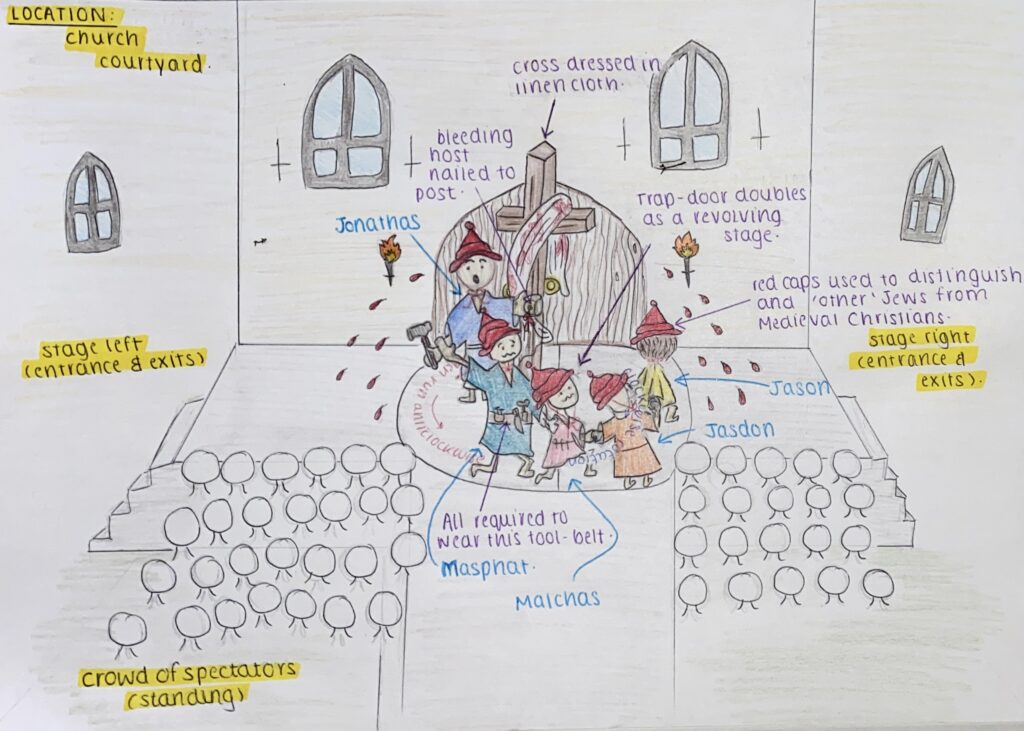 LOCATION:
church
courtyard.
cross dressed in
linen cloth.
bleeding
host
nailed to
post.
Trap-door doubles
as a revolving
stage.
Jonathas
red caps used to distinguish
and 'other' Jews from
Medieval Christians.
stage left
(entrance & exits)
stage right
(entrance &
exits).
run anticlockwise
Jason
Jasdon
All required to
wear this tool-belt.
Masphat.
Malchas
crowd of spectators
(standing)